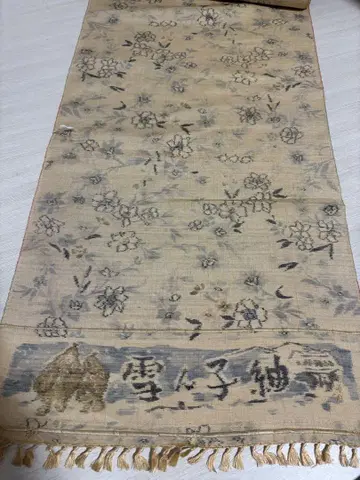 雪ん子紬